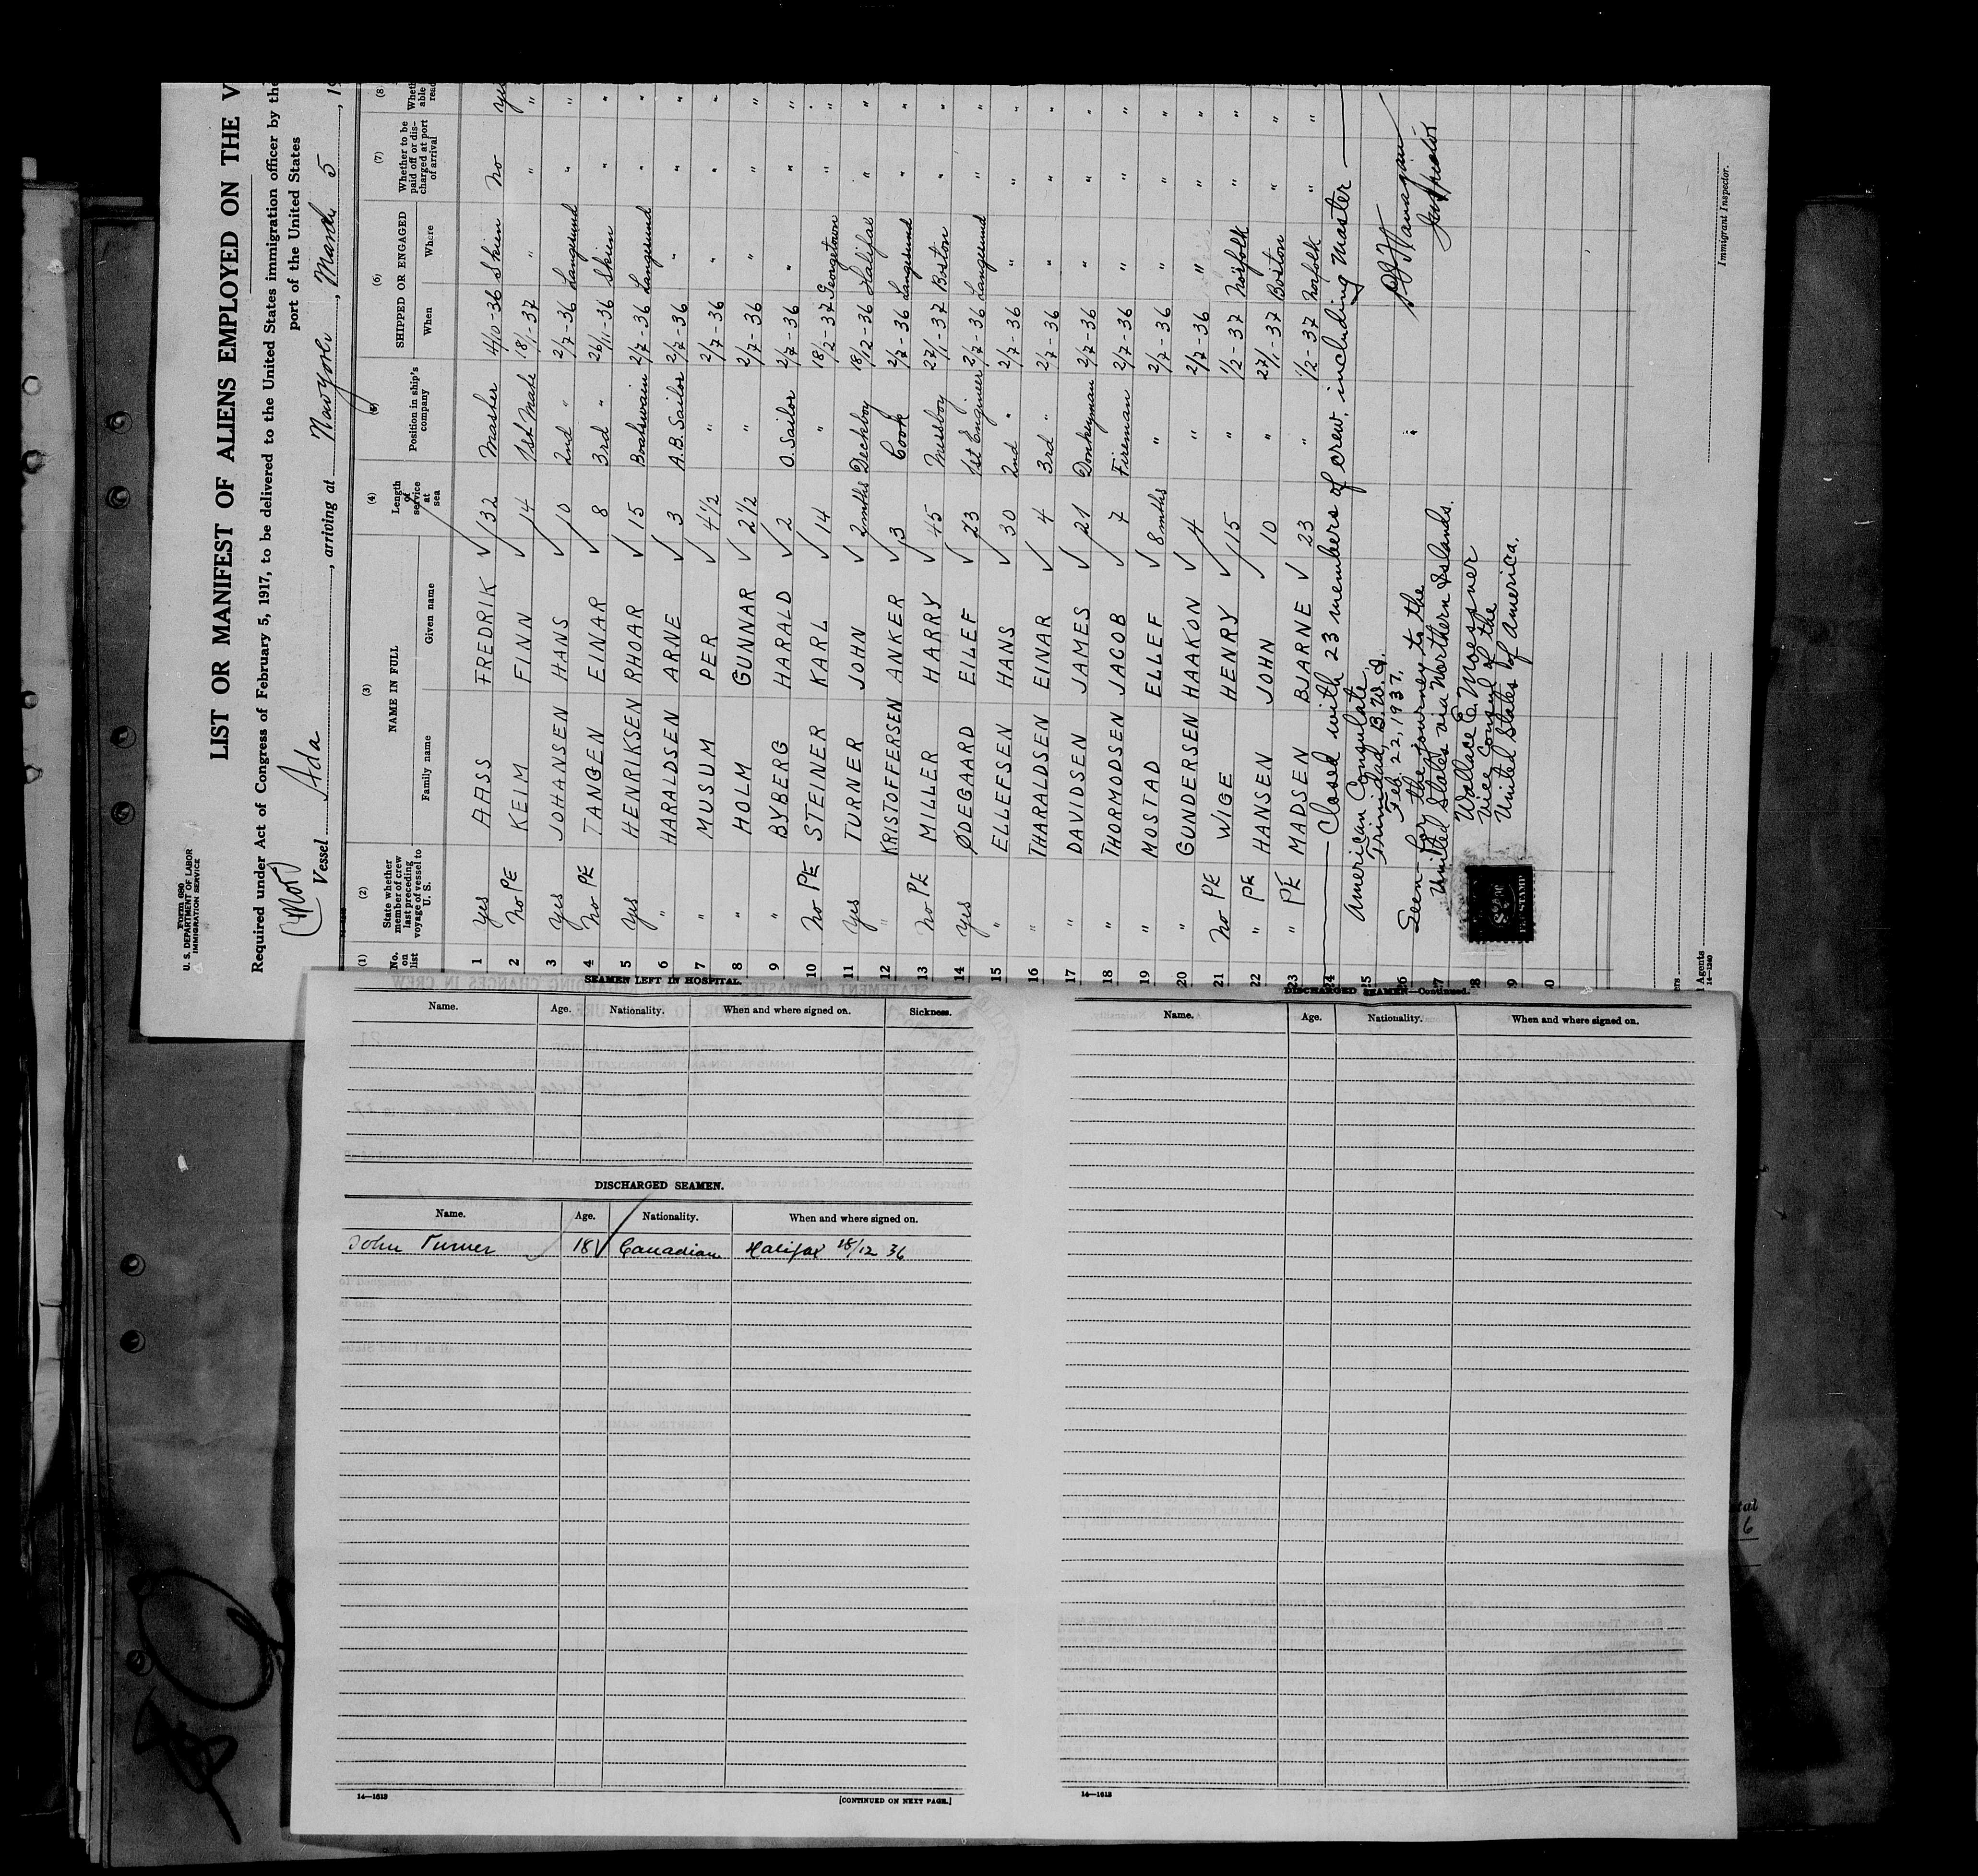 Form 680
U. S. DEPARTMENT OF LABOR
IMMIGRATION SERVICE
LIST OR MANIFEST OF ALIENS EMPLOYED ON THE V
Required under Act of Congress of February 5, 1917, to be delivered to the United States immigration officer by the
port of the United States
Vessel Ada, arriving at March 5, 19
(1) (2) (3) (4) (5) (6) (7) (8)
No. on list State whether member of crew last preceding voyage of vessel to U. S. NAME IN FULL Length of service at sea Position in ship's company SHIPPED OR ENGAGED Whether to be paid off or discharged at port of arrival Wheth able read
Family name Given name When Where
1 yes AASS FREDRIK 32 Master 4/10-36 Skien No yes
2 No PE KEIM FINN 14 1st Mate 18/1-37 " " "
3 yes JOHANSEN HANS 10 2nd " 2/7-36 Langesund " "
4 No PE TANGEN EINAR 8 3rd " 26/11-36 Skien " "
5 yes HENRIKSEN RHOAR 15 Boatswain 2/7-36 Langesund " "
6 " HARALDSEN ARNE 3 A.B. Sailor 2/7-36 " " "
7 " MUSUM PER 4 1/2 " 2/7-36 " " "
8 " HOLM GUNNAR 2 1/2 " 2/7-36 " " "
9 " BYBERG HARALD 2 O. Sailor 2/7-36 " " "
10 No PE STEINER KARL 14 " 18/2-37 Georgetown " "
11 yes TURNER JOHN 2 mths Deckboy 18/12-36 Halifax " "
12 " KRISTOFFERSEN ANKER 3 Cook 2/7-36 Langesund " "
13 No PE MILLER HARRY 45 Messboy 27/1-37 Boston " "
14 yes ØDEGAARD EILEF 23 1st Engineer 2/7-36 Langesund " "
15 " ELLEFSEN HANS 30 2nd " 2/7-36 " " "
16 " THARALDSEN EINAR 4 3rd " 2/7-36 " " "
17 " DAVIDSEN JAMES 21 Donkeyman 2/7-36 " " "
18 " THORMODSEN JACOB 7 Fireman 2/7-36 " " "
19 " MOSTAD ELLEF 8 mths " 2/7-36 " " "
20 " GUNDERSEN HAAKON 4 " 2/7-36 " " "
21 No PE WIGE HENRY 15 " 1/2-37 Norfolk " "
22 " PE HANSEN JOHN 10 " 27/1-37 Boston " "
23 " PE MADSEN BJARNE 23 " 1/2-37 Norfolk " "
24 Closed with 23 members of crew, including Master
25 American Consulate,
Trinidad, B.W.I.
26 Feb. 22, 1937.
Seen for the journey to the
27 United States via Northern Islands.
28 Wallace E. Moessner
Vice Consul of the
29 United States of America.
30
Inspector
Immigrant Inspector.
SEAMEN LEFT IN HOSPITAL.
Name. Age. Nationality. When and where signed on. Sickness.
DISCHARGED SEAMEN.
Name. Age. Nationality. When and where signed on.
John Turner 18 Canadian Halifax 18/12 36
14—1613
[CONTINUED ON NEXT PAGE.]
DISCHARGED SEAMEN—Continued.
Name. Age. Nationality. When and where signed on.
14—1613